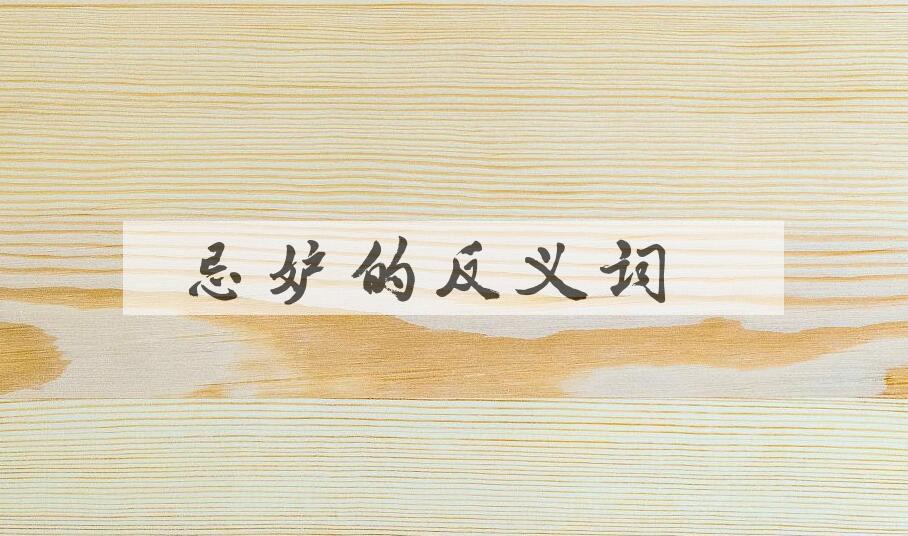 忌妒的反义词